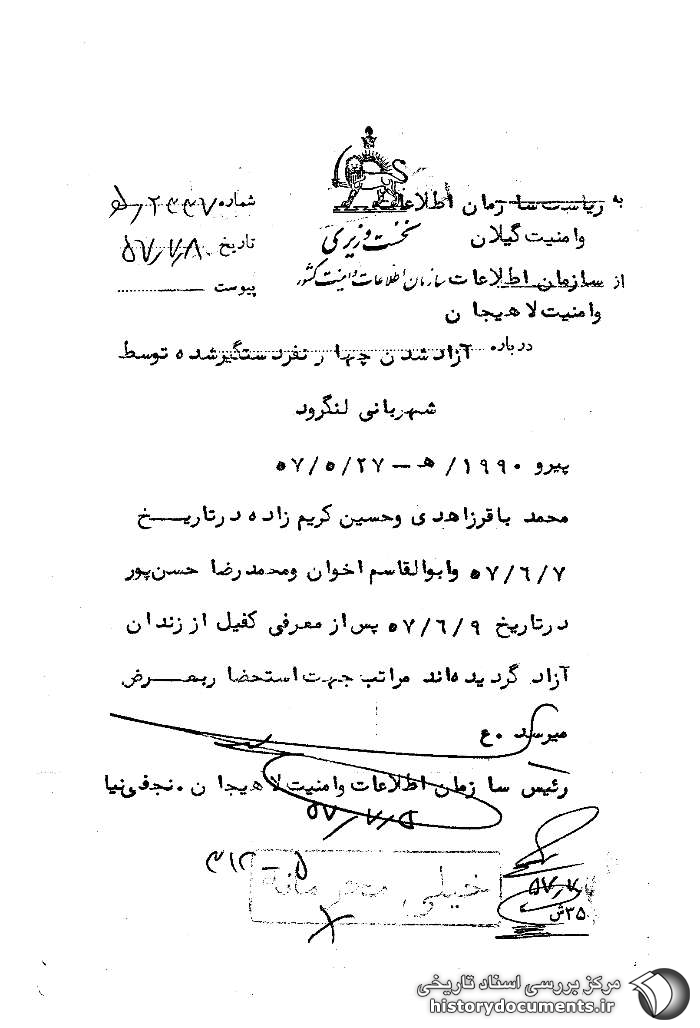 به ریاست سازمان اطلاعات
وامنیت گیلان
نخست وزیری
از سازمان اطلاعات
وامنیت لاهیجان
سازمان اطلاعات و امنیت کشور
شماره ۲۳۳۷/ه
تاریخ ۵۷/۷/۸
پیوست
درباره آزاد شدن چهار نفر دستگیر شده توسط
شهربانی لنگرود
پیرو ۱۹۹۰/ هـ – ۵۷/۵/۲۷
محمد باقر زاهدی وحسین کریم زاده در تاریخ
۵۷/۶/۷ وابوالقاسم اخوان ومحمد رضا حسن‌پور
در تاریخ ۵۷/۶/۹ پس از معرفی کفیل از زندان
آزاد گردیده‌اند مراتب جهت استحضار بعرض
میرسد .ع
رئیس سازمان اطلاعات وامنیت لاهیجان . نجفی نیا
۵۷/۷/۵
۳۱۲ – ۵
خیلی محرمانه
۵۷/۷
۳۵ش
مرکز بررسی اسناد تاریخی
historydocuments.ir